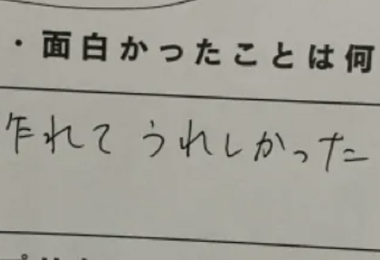 ・面白かったことは何
乍れてうれしかった